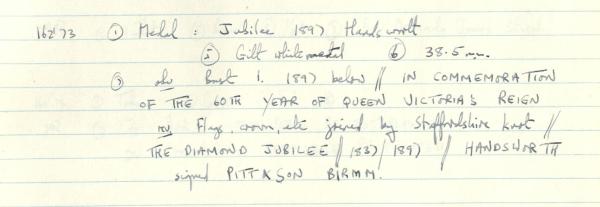 162'73 ① Medal : Jubilee 1897 Handsworth
⑤ Gilt white metal ⑥ 38.5 mm.
⑦ obv Bust l. 1897 below // IN COMMEMORATION
OF THE 60TH YEAR OF QUEEN VICTORIA'S REIGN
rev Flags, crown, etc joined by Staffordshire knot //
THE DIAMOND JUBILEE // 1837/1897 // HANDSWORTH
signed PITT & SON BIRMM.